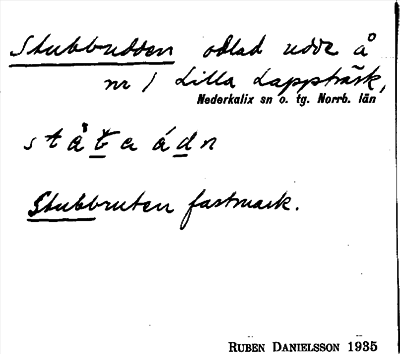 Stubbudden odlad udde å
nr 1 Lilla Lappträsk,
Nederkalix sn o. tg. Norrb. län
Stubbruten fastmark.
RUBEN DANIELSSON 1935